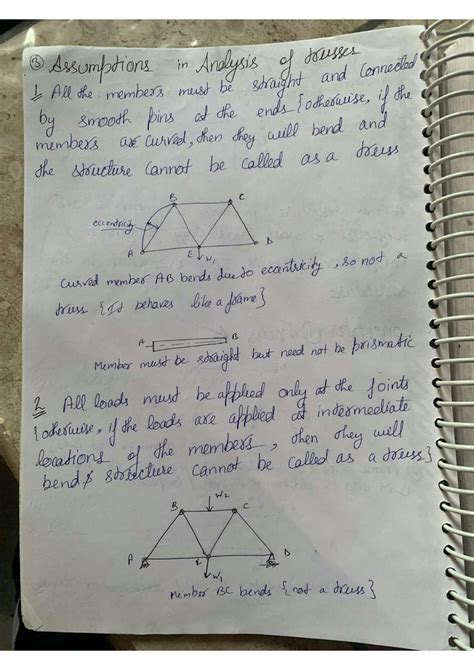 ③ Assumptions in Analysis of trusses
1 All the members must be straight and connected
by smooth pins at the ends {otherwise, if the
members are curved, then they will bend and
the structure cannot be called as a truss
B C
eccentricity
A E D
W1
Curved member AB bends due to eccentricity, so not a
truss {It behaves like a frame}
A B
Member must be straight but need not be prismatic
2 All loads must be applied only at the joints
{otherwise, if the loads are applied at intermediate
locations of the members, then they will
bend & structure cannot be called as a truss}
W2
B C
A E D
W1
Member BC bends {not a truss}